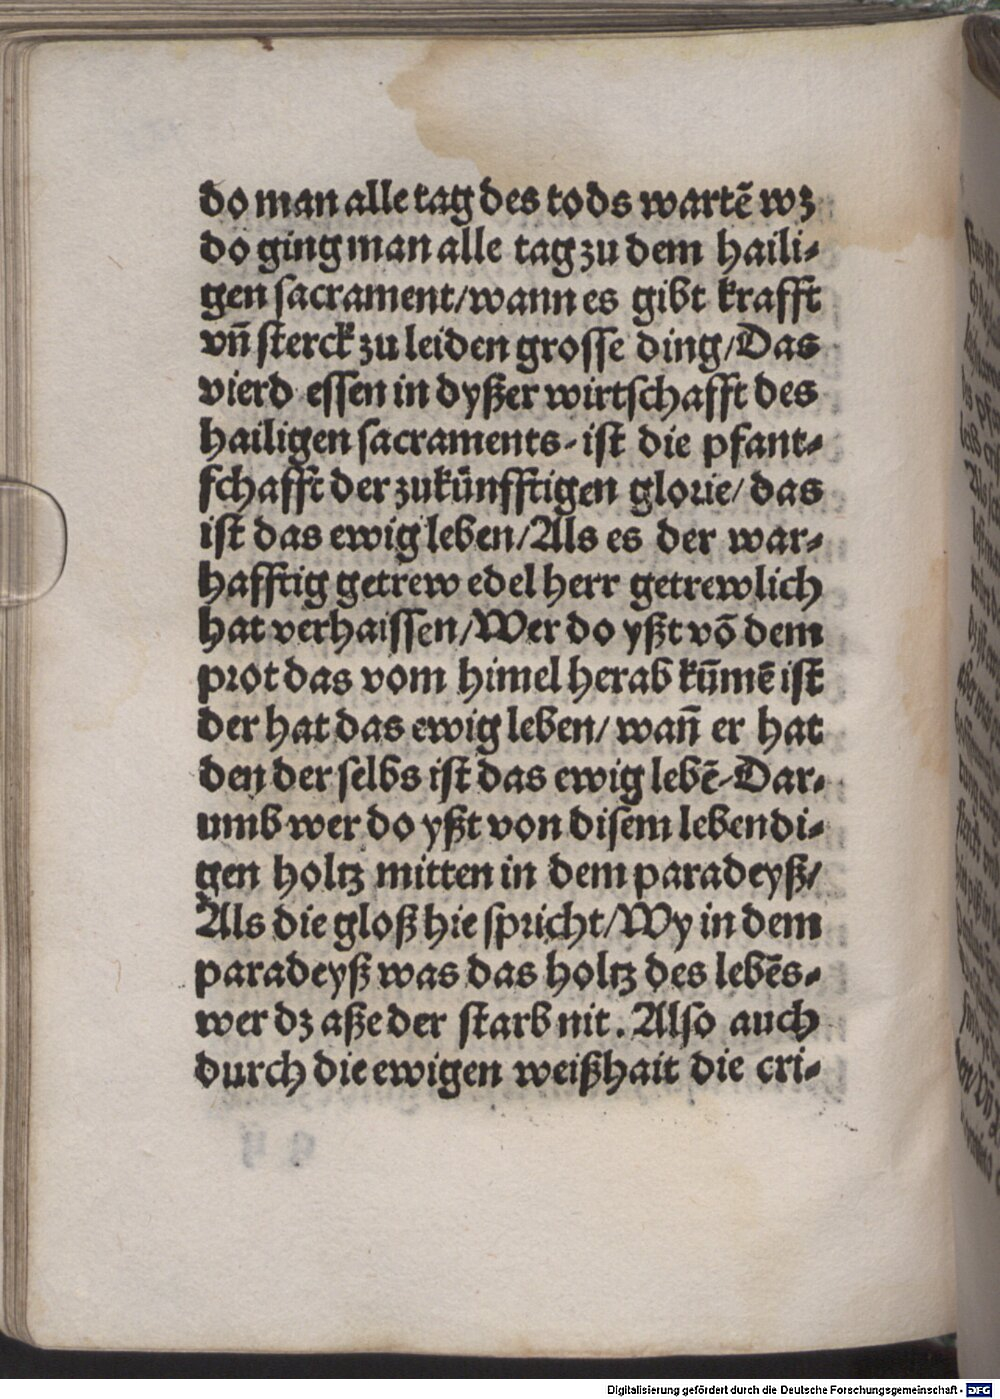 do man alle tag des tods wartē wz
do ging man alle tag zu dem haili⸗
gen sacrament/wann es gibt krafft
vn̄ sterck zu leiden grosse ding/Das
vierd essen in dyßer wirtschafft des
hailigen sacraments⸗ist die pfant⸗
schafft der zukünfftigen glorie/das
ist das ewig leben/Als es der war⸗
hafftig getrew edel herr getrewlich
hat verhaissen/Wer do yßt vō dem
prot das vom himel herab kūmē ist
der hat das ewig leben/wan̄ er hat
den der selbs ist das ewig lebē⸗Dar⸗
umb wer do yßt von disem lebendi⸗
gen holtz mitten in dem paradeyß/
Als die gloß hie spricht/Wy in dem
paradeyß was das holtz des lebēs⸗
wer dz aße der starb nit. Also auch
durch die ewigen weißhait die cri⸗
Digitalisierung gefördert durch die Deutsche Forschungsgemeinschaft - DFG